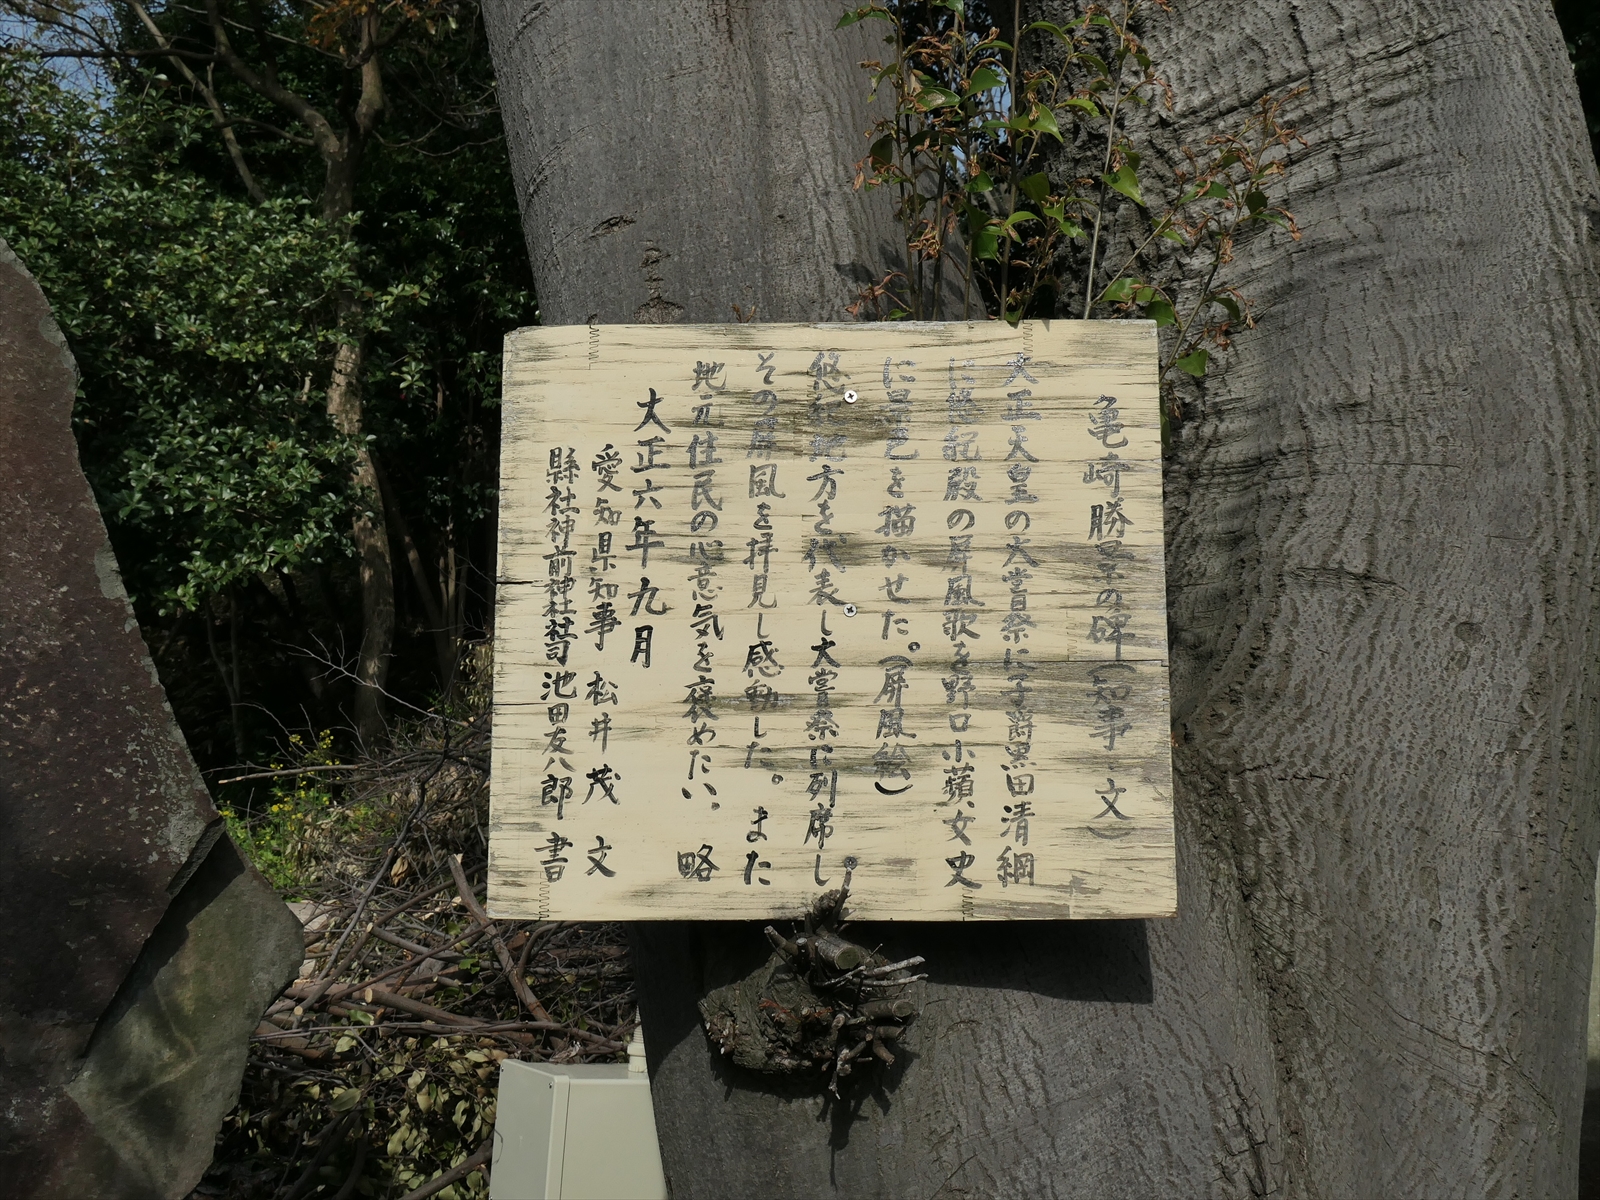 亀崎勝景の碑(知事・文)
大正天皇の大嘗祭に子爵黒田清綱
に悠紀殿の屏風歌を野口小蘋女史
に景色を描かせた。(屏風絵)
悠紀地方を代表し大嘗祭に列席し
その屏風を拝見し感動した。また
地元住民の心意気を褒めたい。 略
大正六年九月
愛知県知事 松井 茂 文
縣社神前神社社司 池田友八郎 書